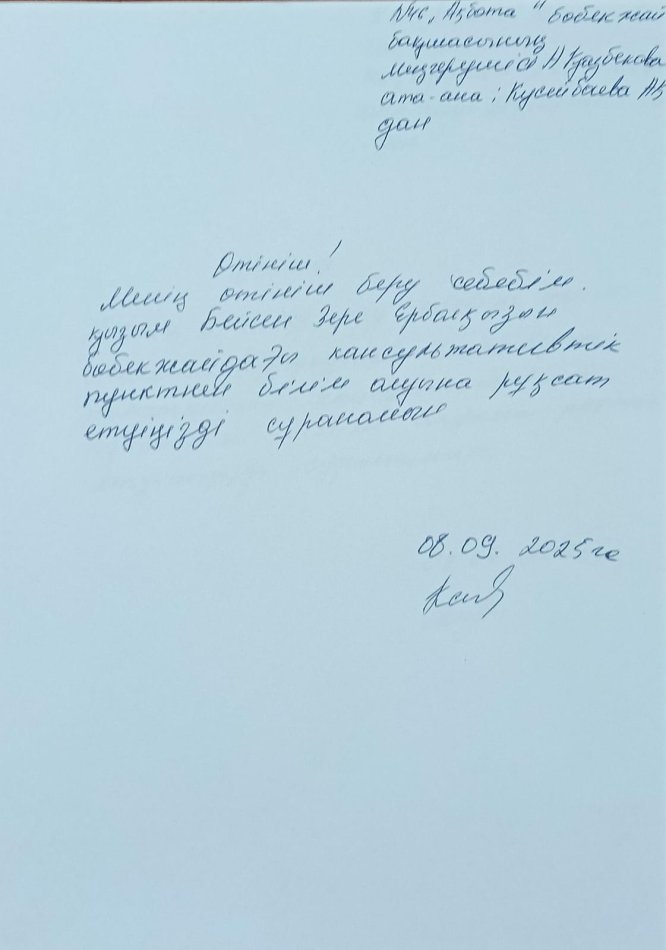 №46 „Ақбота" бөбекжай
бақшасының
меңгерушісі А Қазбекова
ата-ана: Кусейбаева АҚ
дан
Өтініш!
Менің өтініш беру себебім.
қызым Бейсен Зере Ербақызын
бөбекжайдағы кансультативтік
пунктнен білім алуына рұқсат
етуіңізді сұранамын
08.09. 2025 ге